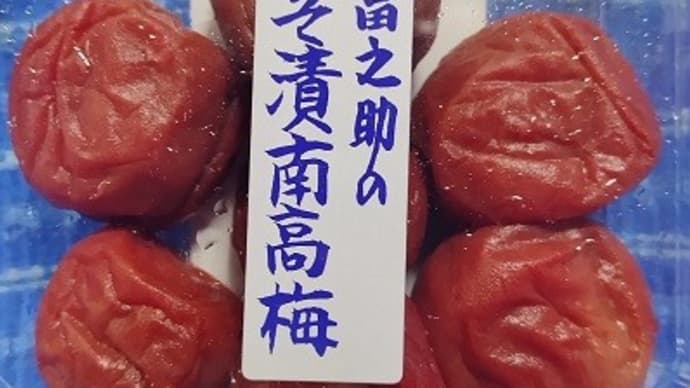 富之助の
そ漬南高梅